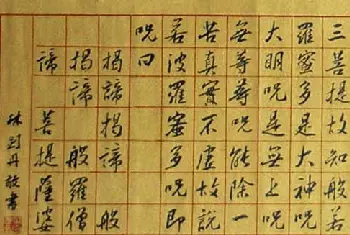 三菩提故知般若
羅蜜多是大神呪
大明呪是無上呪
無等等呪能除一
苦真實不虛故說
若波羅蜜多呪即
呪曰
揭諦揭諦般
揭諦般羅僧
諦菩提薩婆
林 丹敬書